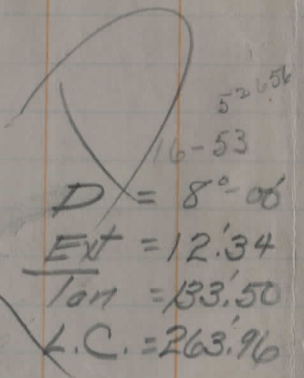 16-53
D = 8°-06'
Ext = 12.'34
Tan = 133.'50
L.C. = 263.'96